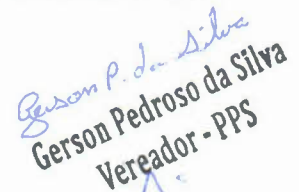 Gerson P. da Silva
Gerson Pedroso da Silva
Vereador - PPS